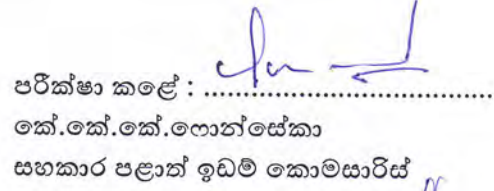 පරීක්ෂා කළේ : ........................................
කේ.කේ.කේ.ෆොන්සේකා
සහකාර පළාත් ඉඩම් කොමසාරිස්